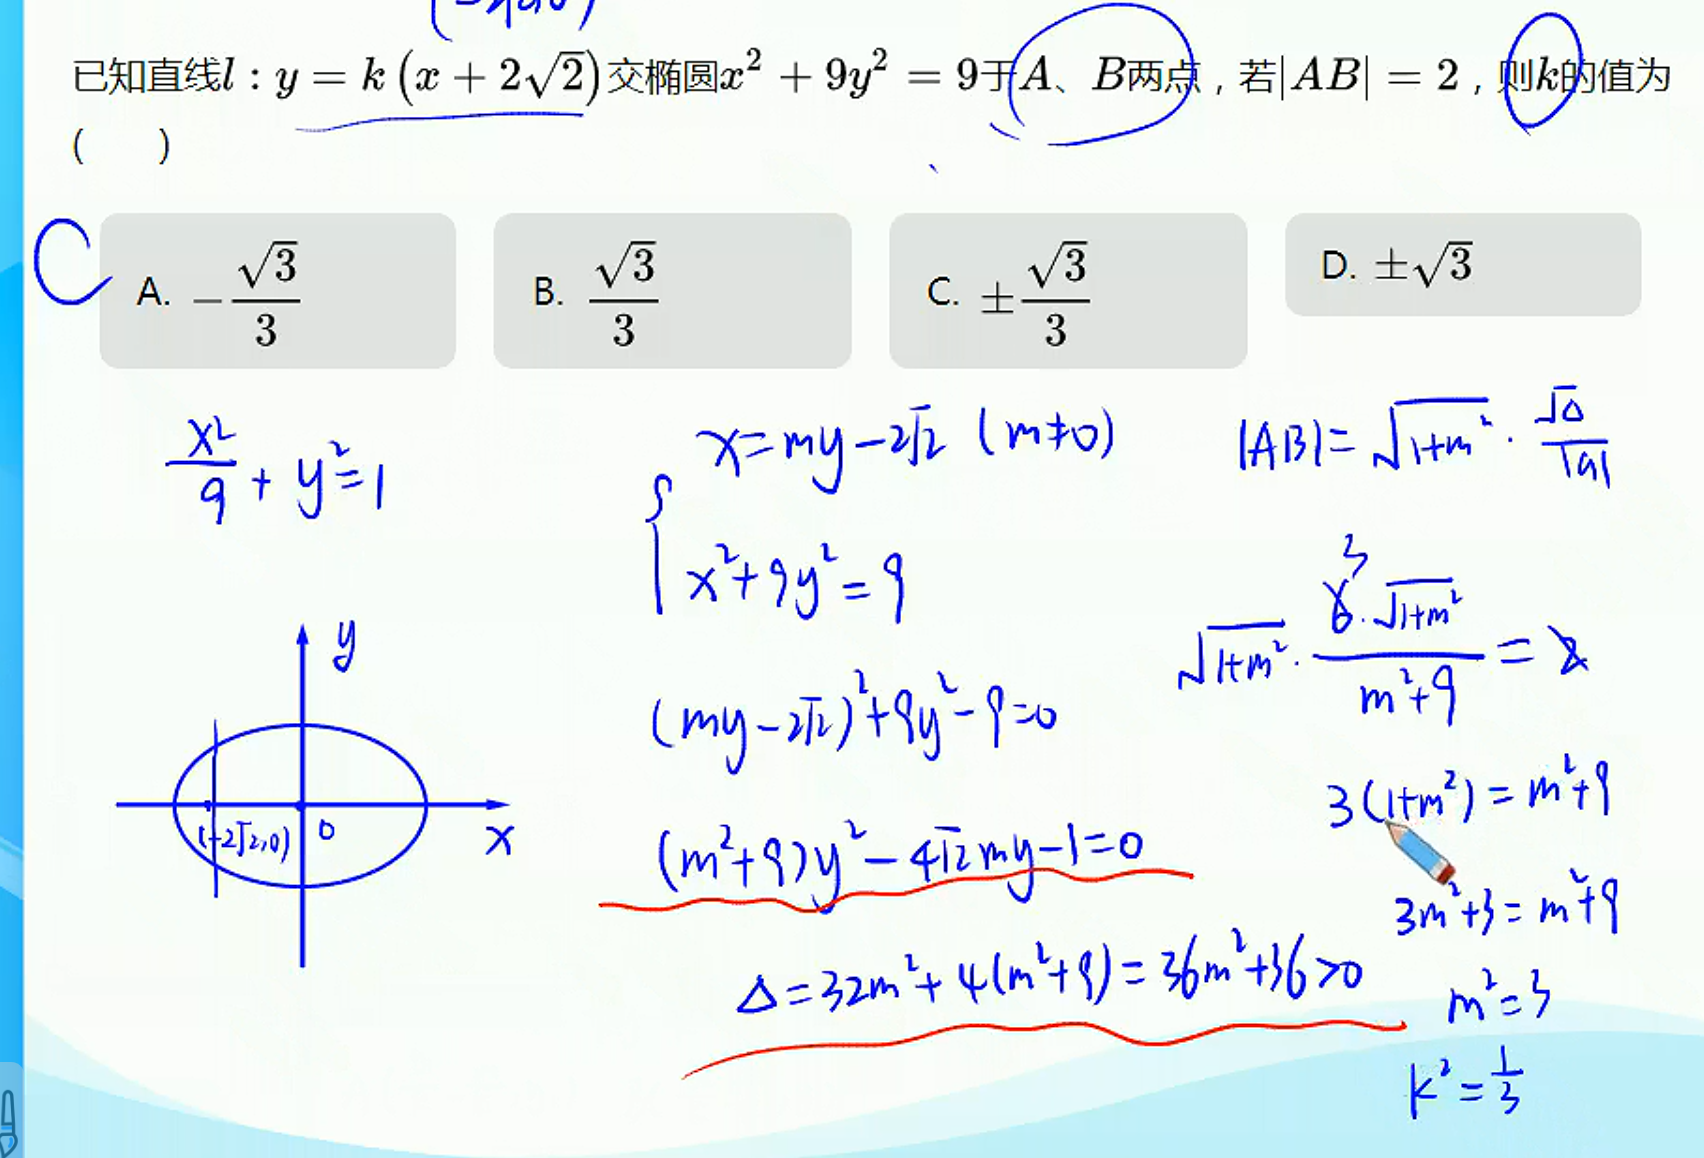 已知直线l：y = k(x + 2√2)交椭圆x² + 9y² = 9于A、B两点，若|AB| = 2，则k的值为
(   )
C
A. -√3/3
B. √3/3
C. ±√3/3
D. ±√3
x²/9 + y² = 1
y
(-2√2,0)
0
x
x = my - 2√2 (m≠0)
x² + 9y² = 9
(my - 2√2)² + 9y² - 9 = 0
(m² + 9)y² - 4√2my - 1 = 0
Δ = 32m² + 4(m² + 9) = 36m² + 36 > 0
|AB| = √(1+m²) · √Δ/|a|
3
√(1+m²) · 6·√(1+m²)/(m²+9) = 2
3(1+m²) = m²+9
3m²+3 = m²+9
m² = 3
k² = 1/3